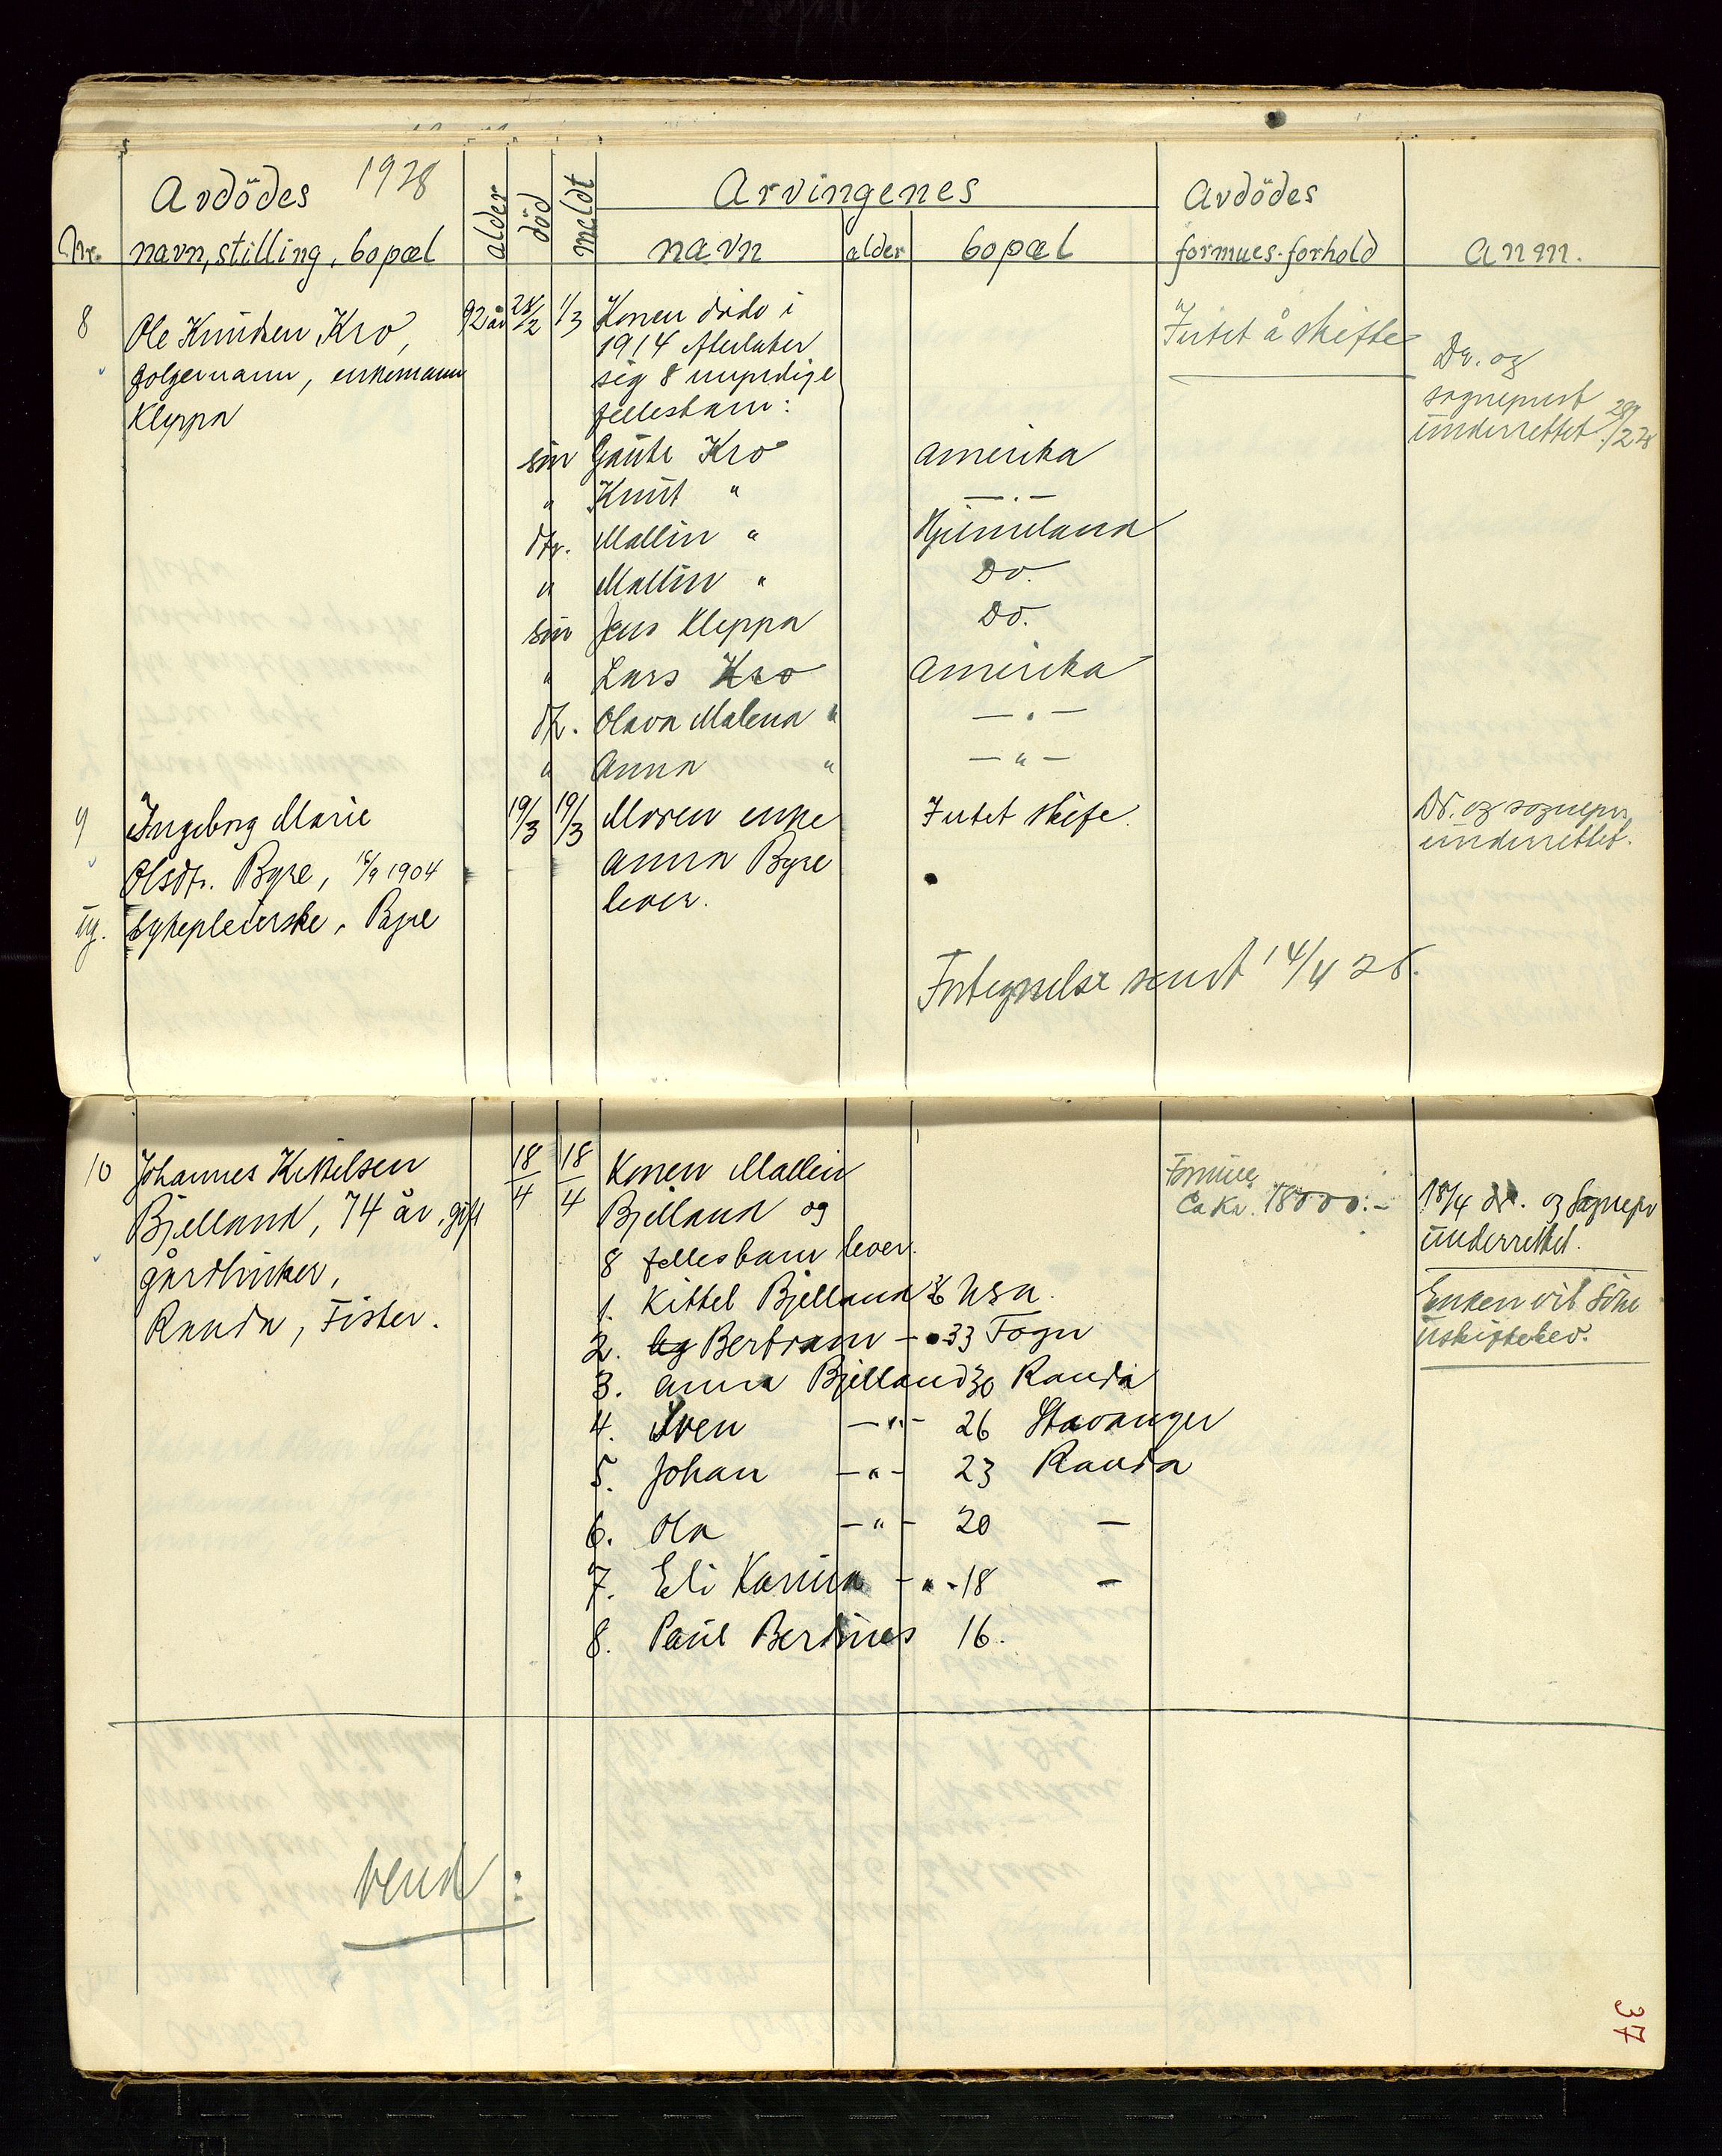 Avdödes 1928
alder
död
meldt
Arvingenes
Avdödes
Nr. navn, stilling, bopæl
navn alder bopæl
formues-forhold
anm.
8 Ole Knudsen Kro, 92 år 28/2 1/3 Konen döde i Intet å skifte
1914 Efterlater Dr. og
folgemann, enkemann sig 8 myndige sogneprest
Kleppa fellesbarn: underrettet 29/2 28
sön Gaute Kro Amerika
" Knut " — . —
dtr. Mallin " Hjelmeland
" Mallin " Do.
sön Jens Kleppa Do.
" Lars Kro Amerika
dtr. Olava Malena " — " —
" Anna " — " —
9 Ingeborg Marie 19/3 19/3 Moren enke Intet skifte. Dr. og sognepr.
Olsdtr. Byre, 1904 Anna Byre underrettet.
ug. sykepleierske, Byre lever.
Fortegnelse sendt 14/4 28.
10 Johannes Kittelsen 18/4 18/4 Konen Mallin Formue
Bjelland, 74 år, gift Bjelland og Ca Kr. 18000:- 18/4 dr. og Sognepr
gårdbruker, 8 fellesbarn lever. underrettet.
Randa, Fister. 1. Kittel Bjelland 36 USA. Enken vil söke
2. og Bertram — " 33 Fogn uskiftebev.
3. Anna Bjelland 30 Randa
4. Sven — " — 26 Stavanger
5. Johan — " — 23 Randa
6. Ola — " — 20 —
7. Eli Karina — " — 18 —
8. Paul Bertinus 16.
Vend :
37